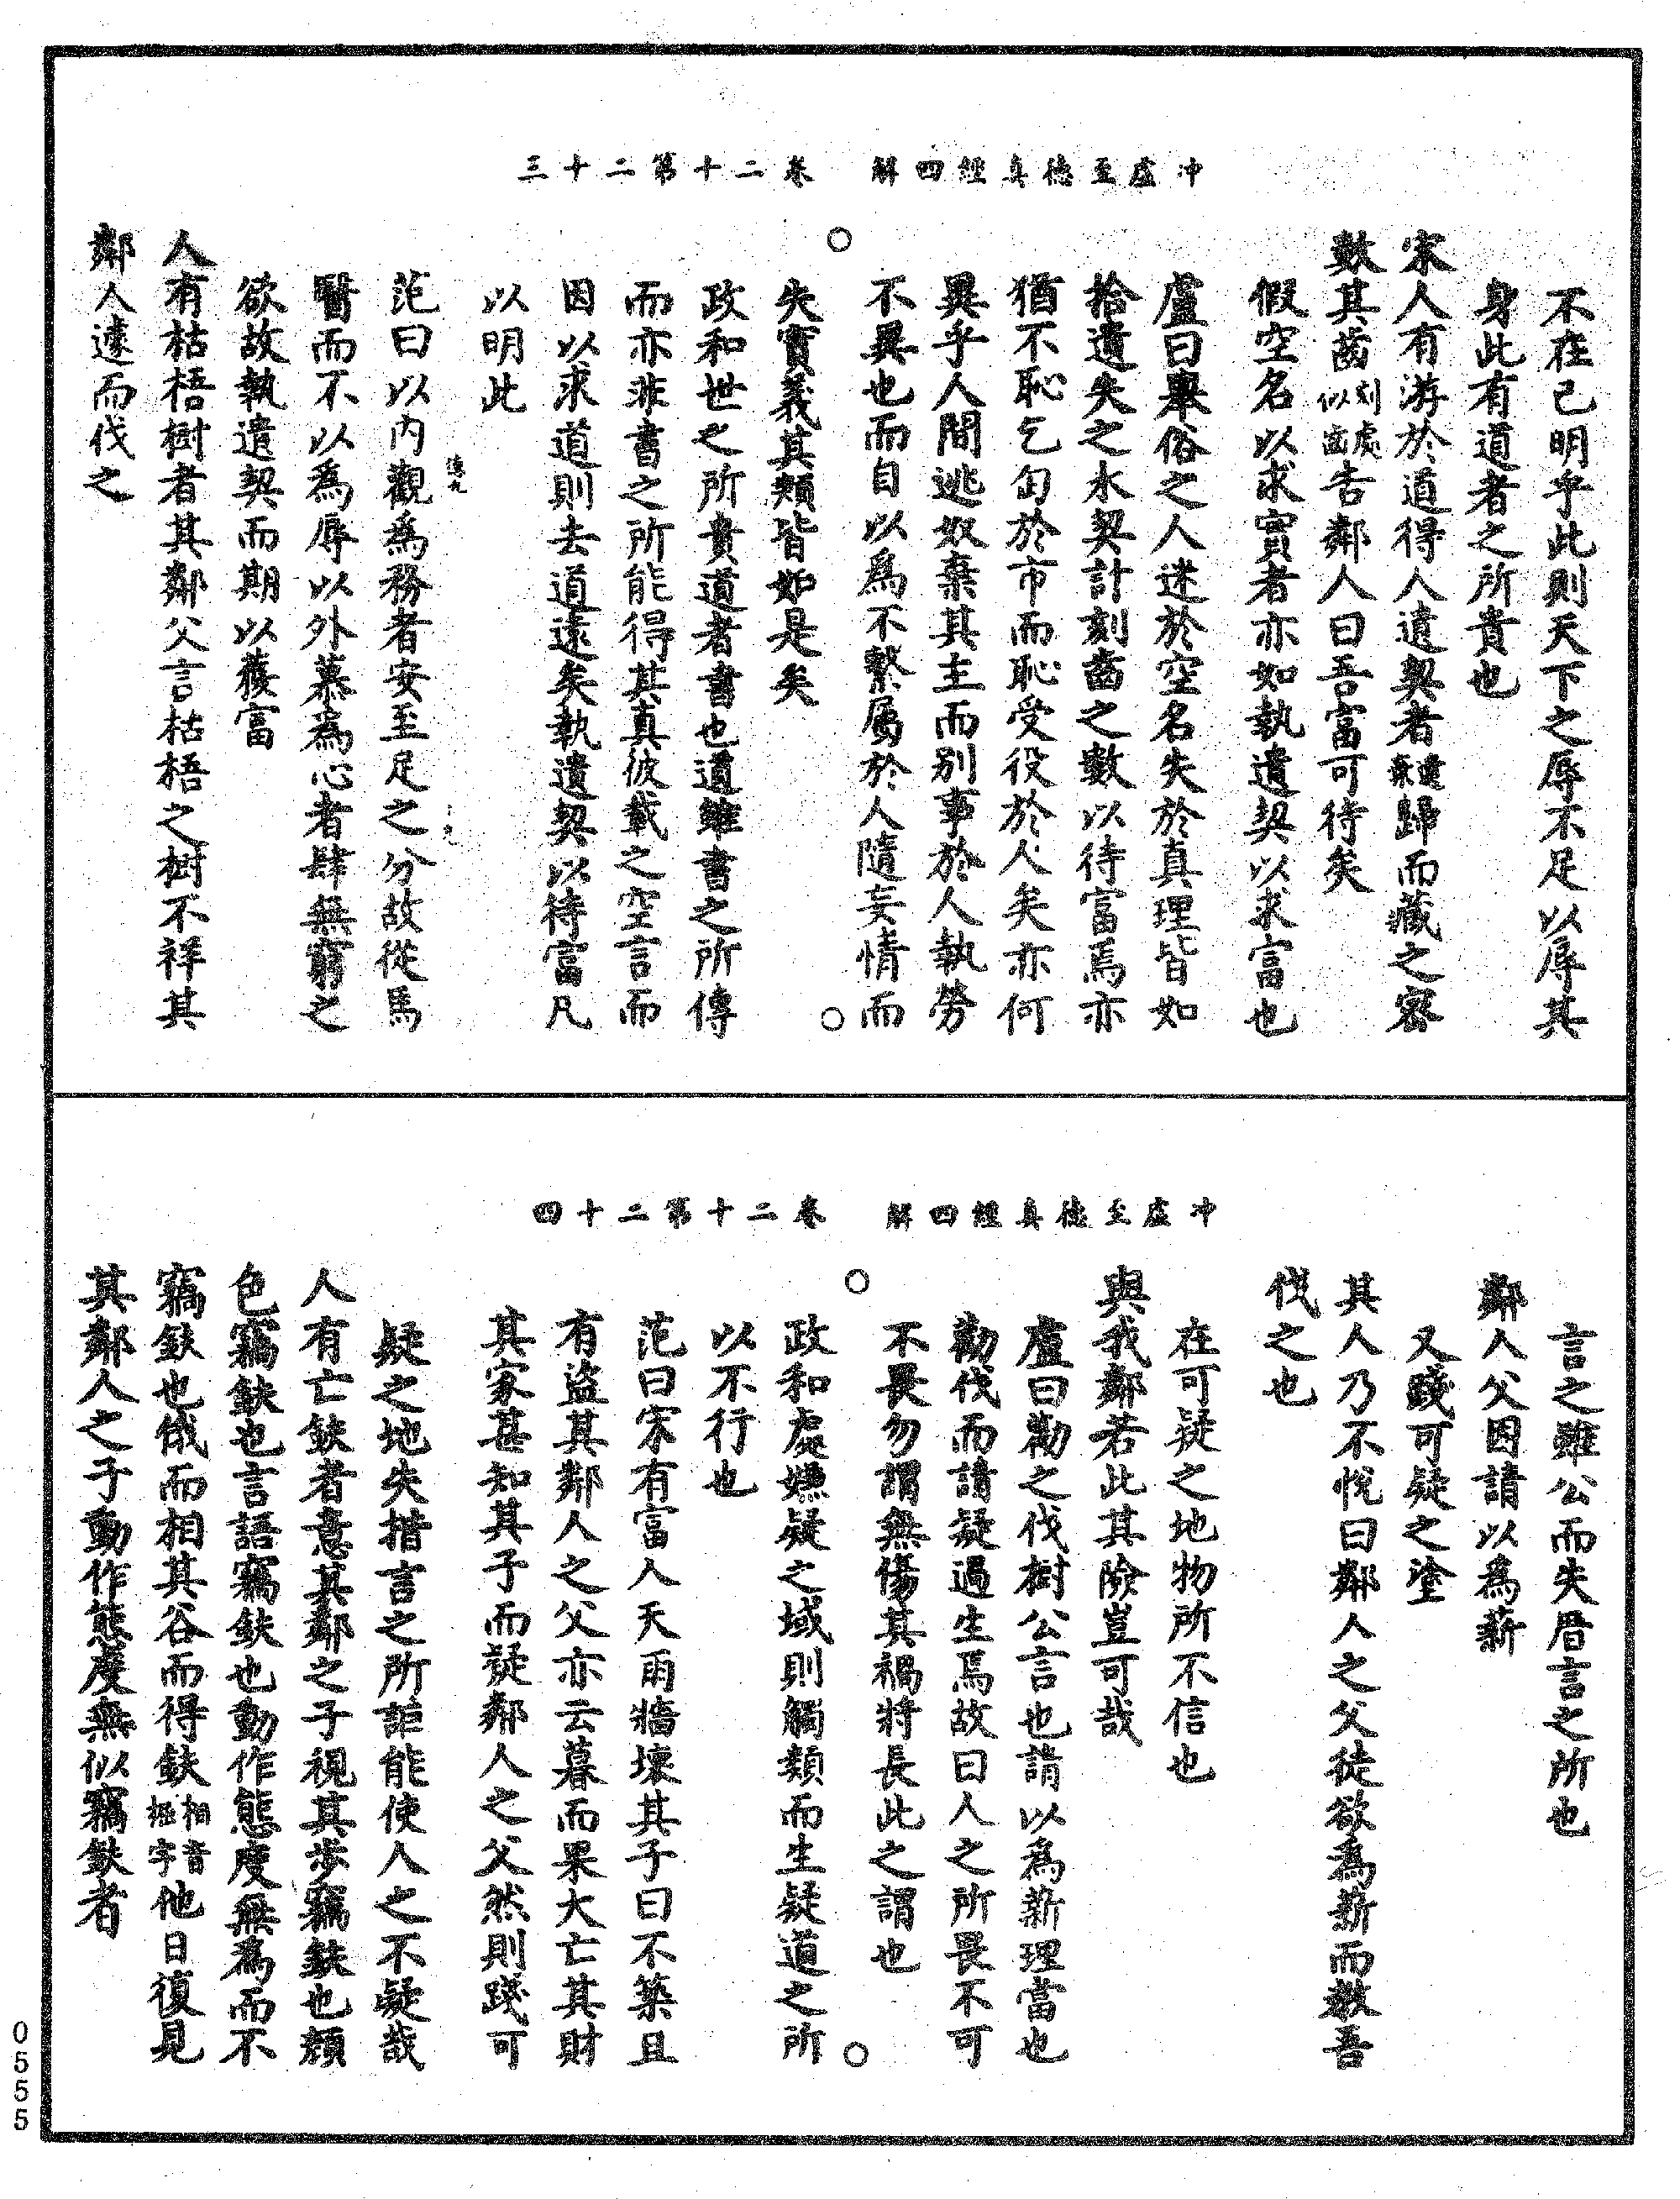 冲虛至德真經四解　卷二十第二十三
不在己明乎此則天下之辱不足以辱其
身此有道者之所貴也
宋人有游於道得人遺契者遺棄歸而藏之密
數其齒刻處似齒告鄰人曰吾富可待矣
假空名以求實者亦如執遺契以求富也
盧曰舉俗之人迷於空名失於真理皆如
拾遺失之木契計刻齒之數以待富焉亦
猶不恥乞匃於市而恥受役於人矣亦何
異乎人間逃奴棄其主而別事於人執勞
不異也而自以為不繫屬於人隨妄情而
失實義其類皆如是矣
政和世之所貴道者書也道雖書之所傳
而亦非書之所能得其真彼載之空言而
因以求道則去道遠矣執遺契以待富凡
以明此
范曰以內觀為務者安至足之分故從馬
醫而不以為辱以外慕為心者肆無窮之
欲故執遺契而期以獲富
人有枯梧樹者其鄰父言枯梧之樹不祥其
鄰人遽而伐之
冲虛至德真經四解　卷二十第二十四
言之雖公而失厝言之所也
鄰人父因請以為薪
又踐可疑之塗
其人乃不悅曰鄰人之父徒欲為薪而教吾
伐之也
在可疑之地物所不信也
與我鄰若此其險豈可哉
盧曰勸之伐樹公言也請以為薪理當也
勸伐而請疑過生焉故曰人之所畏不可
不畏勿謂無傷其禍將長此之謂也
政和處嫌疑之域則觸類而生疑道之所
以不行也
范曰宋有富人天雨牆壞其子曰不築且
有盜其鄰人之父亦云暮而果大亡其財
其家甚知其子而疑鄰人之父然則踐可
疑之地失措言之所詎能使人之不疑哉
人有亡鈇者意其鄰之子視其步竊鈇也顏
色竊鈇也言語竊鈇也動作態度無為而不
竊鈇也俄而抇其谷而得鈇抇音掘字他日復見
其鄰人之子動作態度無似竊鈇者
0555